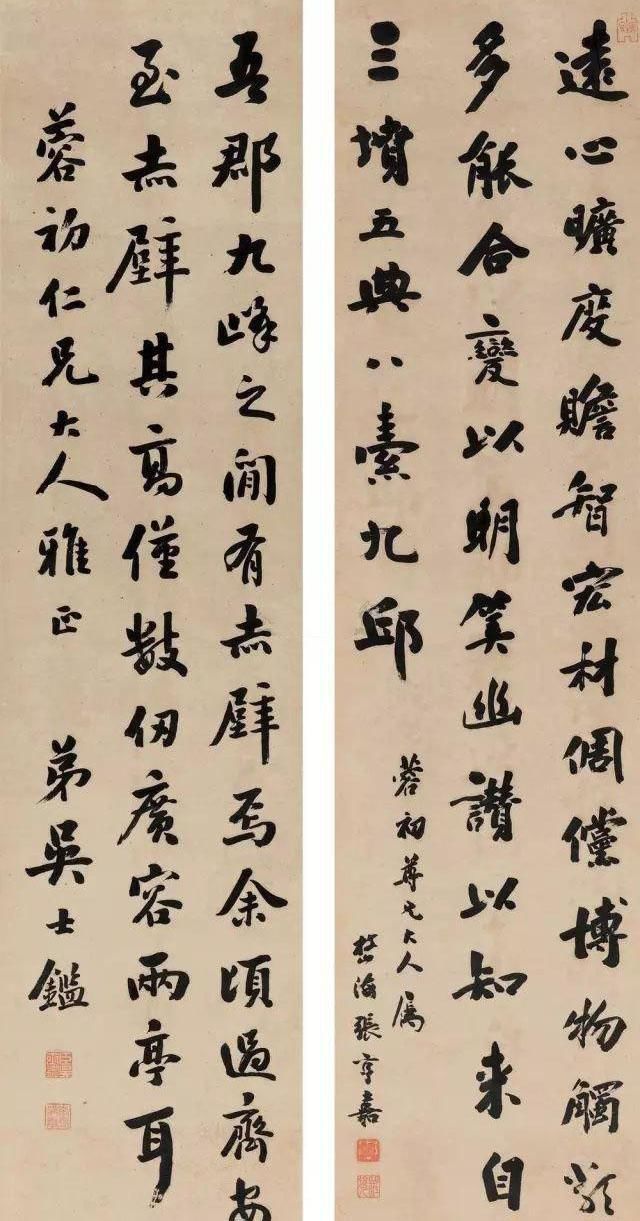 遠心曠度贍智宏材倜儻博物觸類
多能合變以明筭幽讚以知來自
三墳五典八索九邱
蓉初尊兄大人屬
海張亨嘉
吾郡九峰之間有赤壁焉余頃過齊安
至赤壁其高僅數仞廣容兩亭耳
蓉初仁兄大人雅正 弟吳士鑑